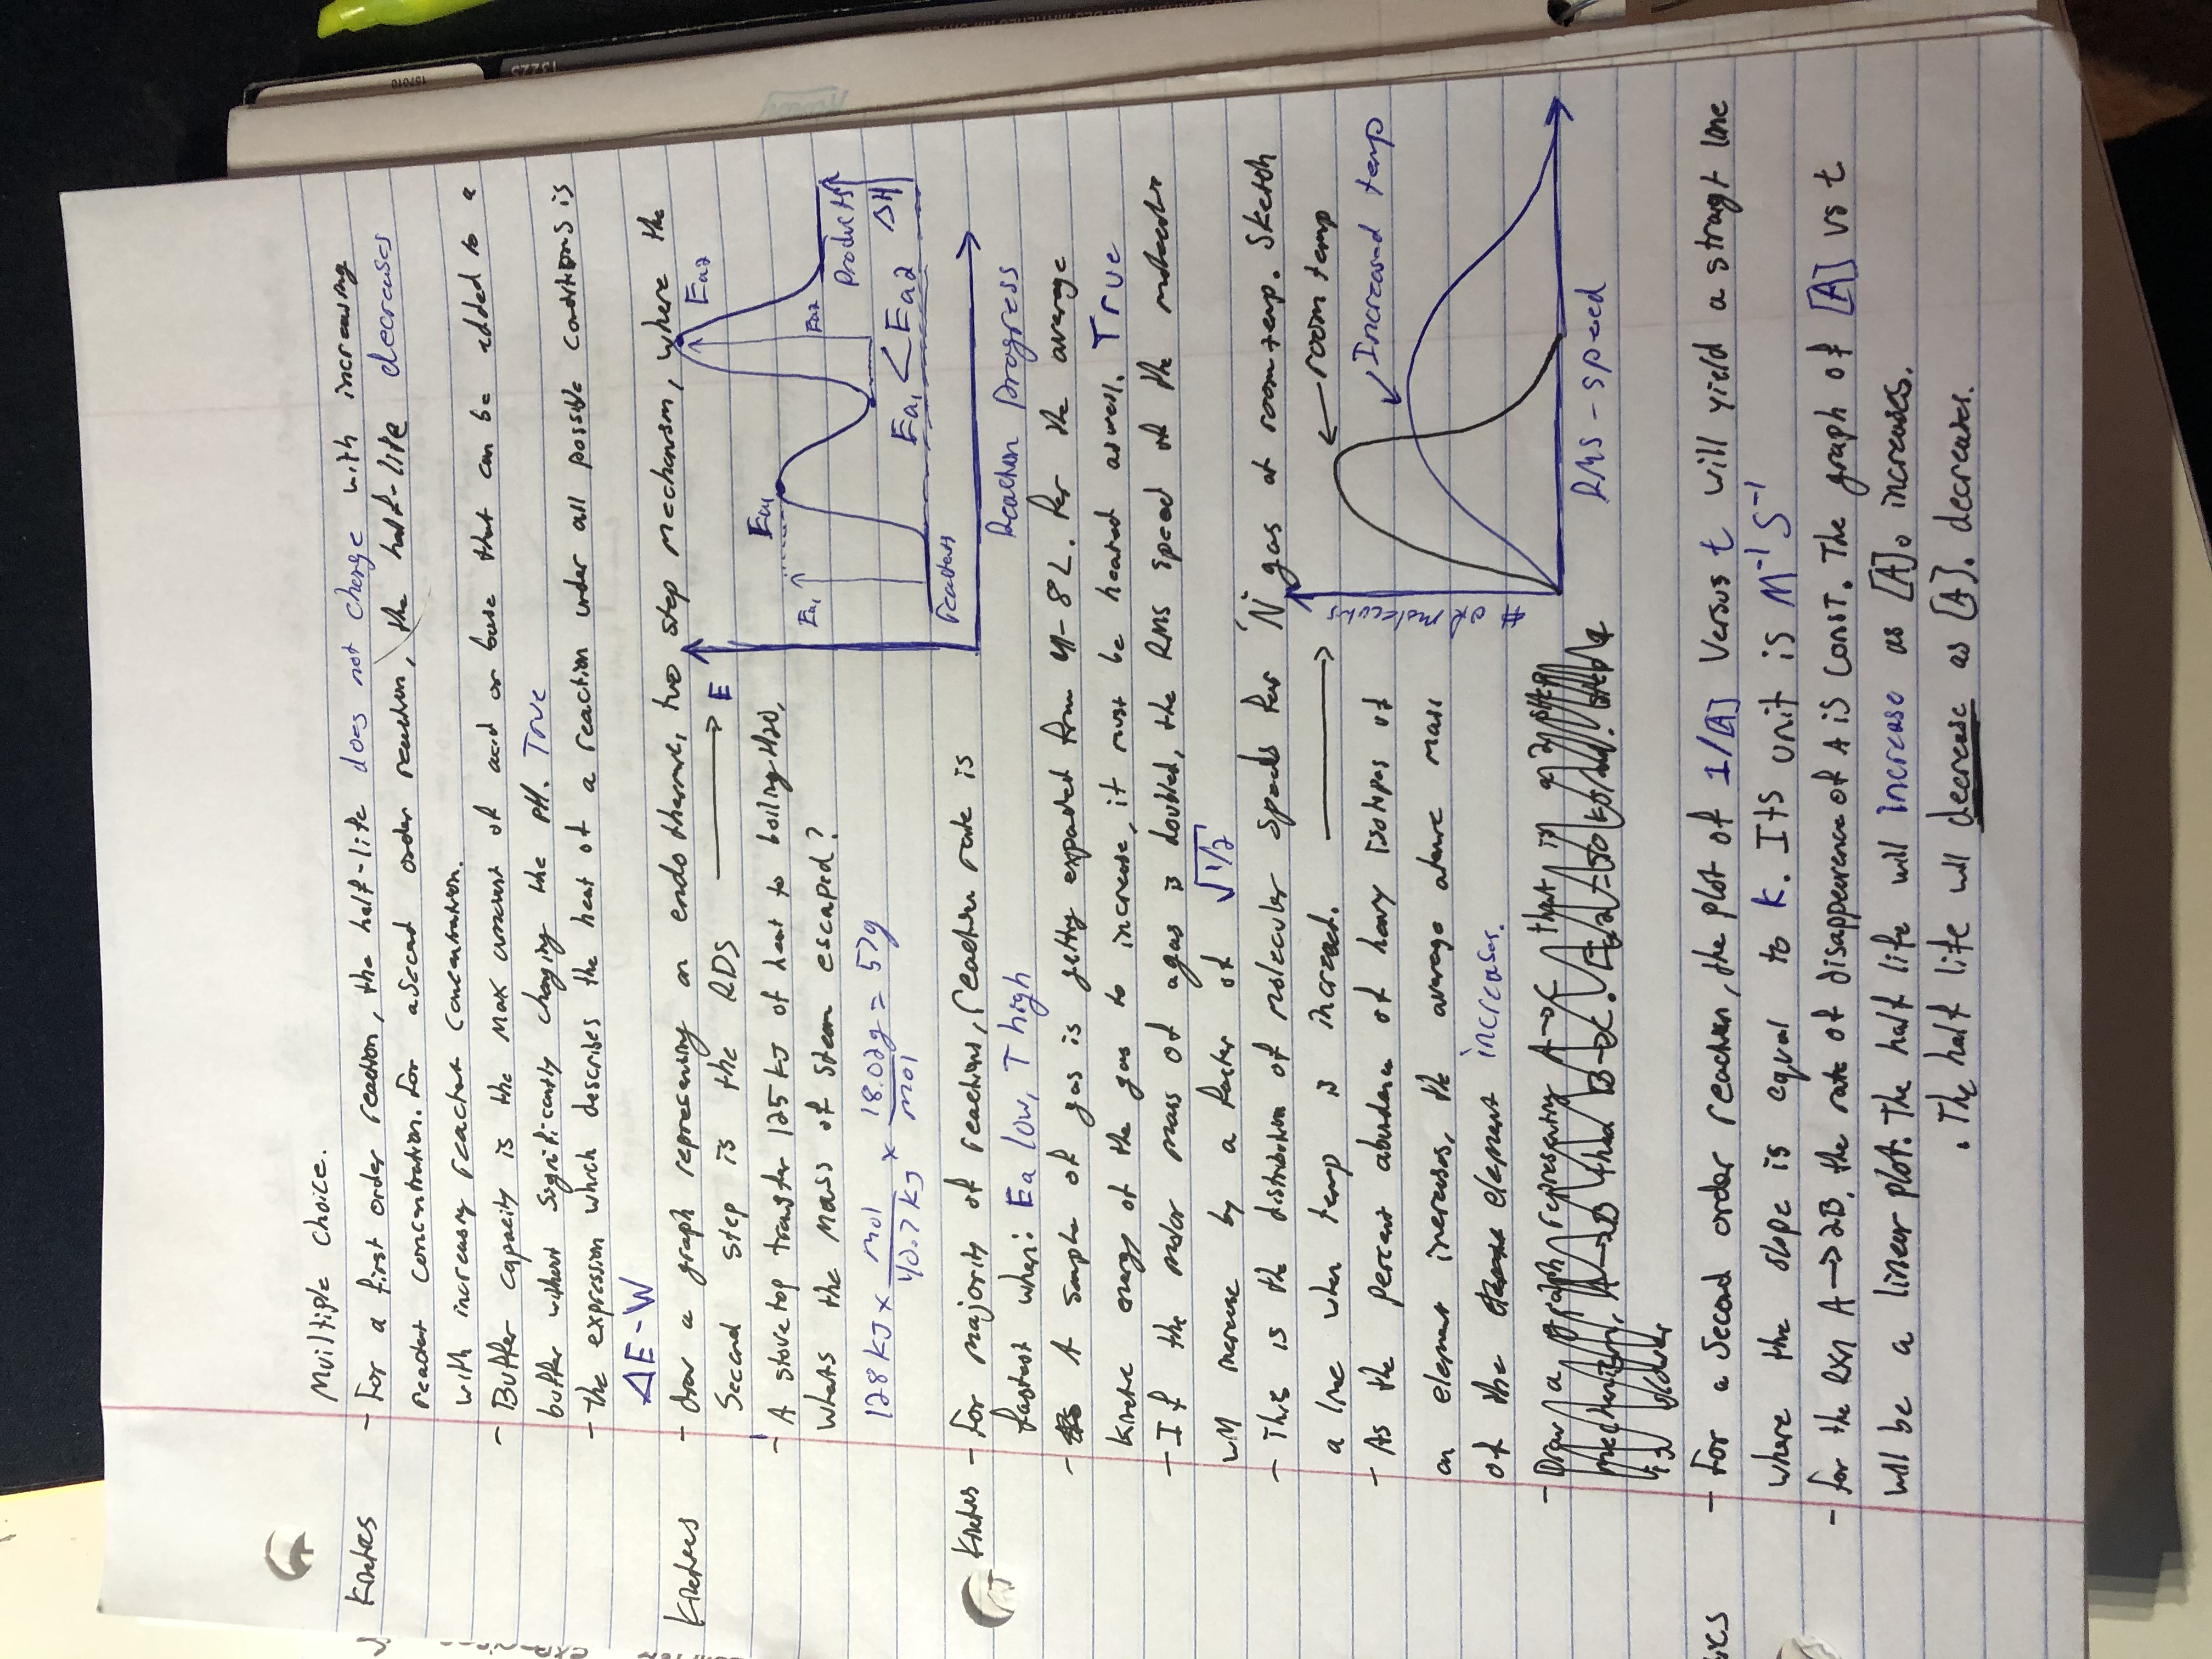 Multiple choice.
Kinetics - For a first order reaction, the half-life does not change with increasing
reactant concentration. For a second order reaction, the half-life decreases
with increasing reactant concentration.
- Buffer capacity is the max amount of acid or base that can be added to a
buffer without significantly changing the pH. True
- the expression which describes the heat of a reaction under all possible conditions is
ΔE-W
Kinetics - draw a graph representing an endothermic, two step mechanism, where the
second step is the RDS → E
Ea1
Ea1
Ea2
Ea2
reactants
products
ΔH
Ea1 < Ea2
Reaction Progress
- A stove top transfer 125 kJ of heat to boiling H2O,
whats the mass of steam escaped?
128 KJ x mol/40.7 kJ x 18.02g/mol = 57g
Kinetics - For majority of reactions, reaction rate is
fastest when: Ea low, T high
- A sample of gas is gently expanded from 4-8 L. For the average
kinetic energy of the gas to increase, it must be heated as well. True
- If the molar mass of a gas is doubled, the RMS speed of the molecules
will increase by a factor of √1/2
- This is the distribution of molecular speeds for N gas at room temp. Sketch
a line when temp is increased. →
# of molecules
← room temp
Increased temp
RMS - speed
- As the percent abundance of heavy isotopes of
an element increases, the average atomic mass
of the element increases.
- Draw a graph representing A→C that is
- For a second order reaction, the plot of 1/[A] versus t will yield a straight line
where the slope is equal to k. Its unit is M⁻¹ S⁻¹
- for the rxn A → 2B, the rate of disappearence of A is const. The graph of [A] vs t
will be a linear plot. The half life will increase as [A]₀ increases.
. The half life will decrease as [A]. decreases.